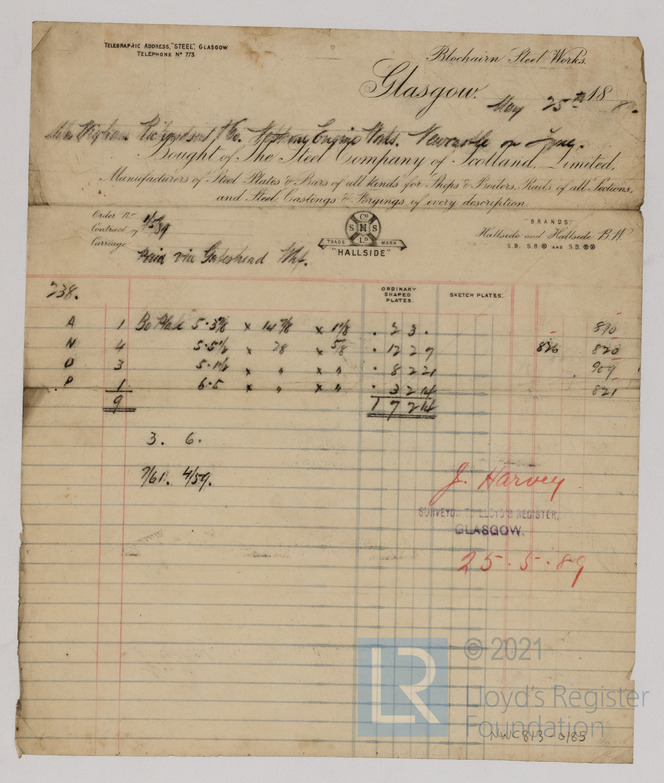 TELEGRAPHIC ADDRESS, "STEEL", GLASGOW
TELEPHONE Nº 773.
Blochairn Steel Works.
Glasgow. May 25th 18
Wigham Richardson & Co. Neptune Engine Works. Newcastle on Tyne.
Bought of The Steel Company of Scotland, Limited,
Manufacturers of Steel Plates & Bars of all kinds for Ships & Boilers, Rails of all Sections,
and Steel Castings & Forgings of every description.
Order Nº
Contract of
Carriage Paid via Gateshead
Cº
S N S
Lᴰ
TRADE MARK
"HALLSIDE"
BRANDS
Hallside and Hallside B.W
S.B. S.B.® AND S.B.
238.
ORDINARY SHAPED PLATES.
SKETCH PLATES.
A 1 5·3⅞ x x 1⅛ . 2 3 . 890
N 4 5·5½ x 28 x ⅝ . 12 2 7 826 820
O 3 5·1½ x " x " . 8 2 21 909
P 1 6·5 x " x " . 3 2 14 821
9 1 7 2 14
3. 6.
7/61. 4/59.
J. Harvey
SURVEYOR LLOYD'S REGISTER,
GLASGOW.
25·5·89
© 2021
LR
Lloyd's Register
Foundation
NWC813-0185